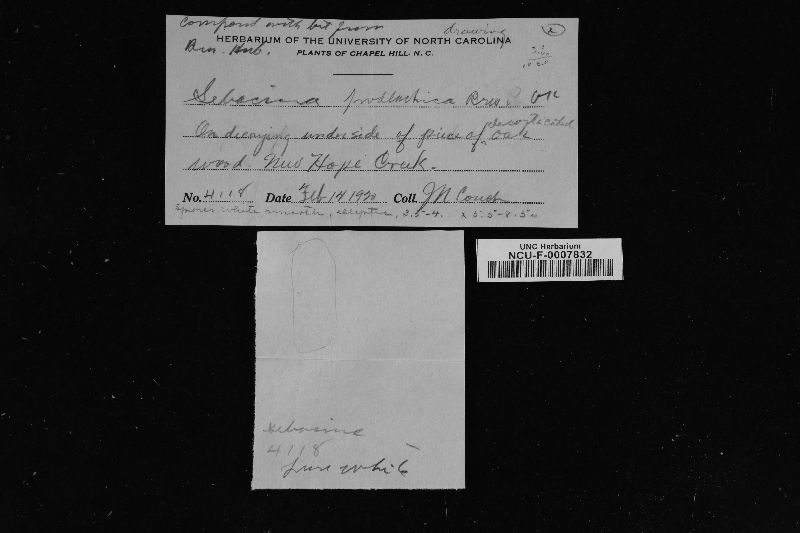 Compared with bit from drawing
Brs. Herb.
HERBARIUM OF THE UNIVERSITY OF NORTH CAROLINA
PLANTS OF CHAPEL HILL, N. C.
Sebacina Bres. OK
On decaying underside of piece of decorticated oak
wood. New Hope Creek.
No. 4118 Date Feb 14 1920 Coll. JN Couch
Spores white smooth, elliptic, 3.5-4. x 5.5-8.5u
UNC Herbarium
NCU-F-0007832
Sebacina
4118
pure white